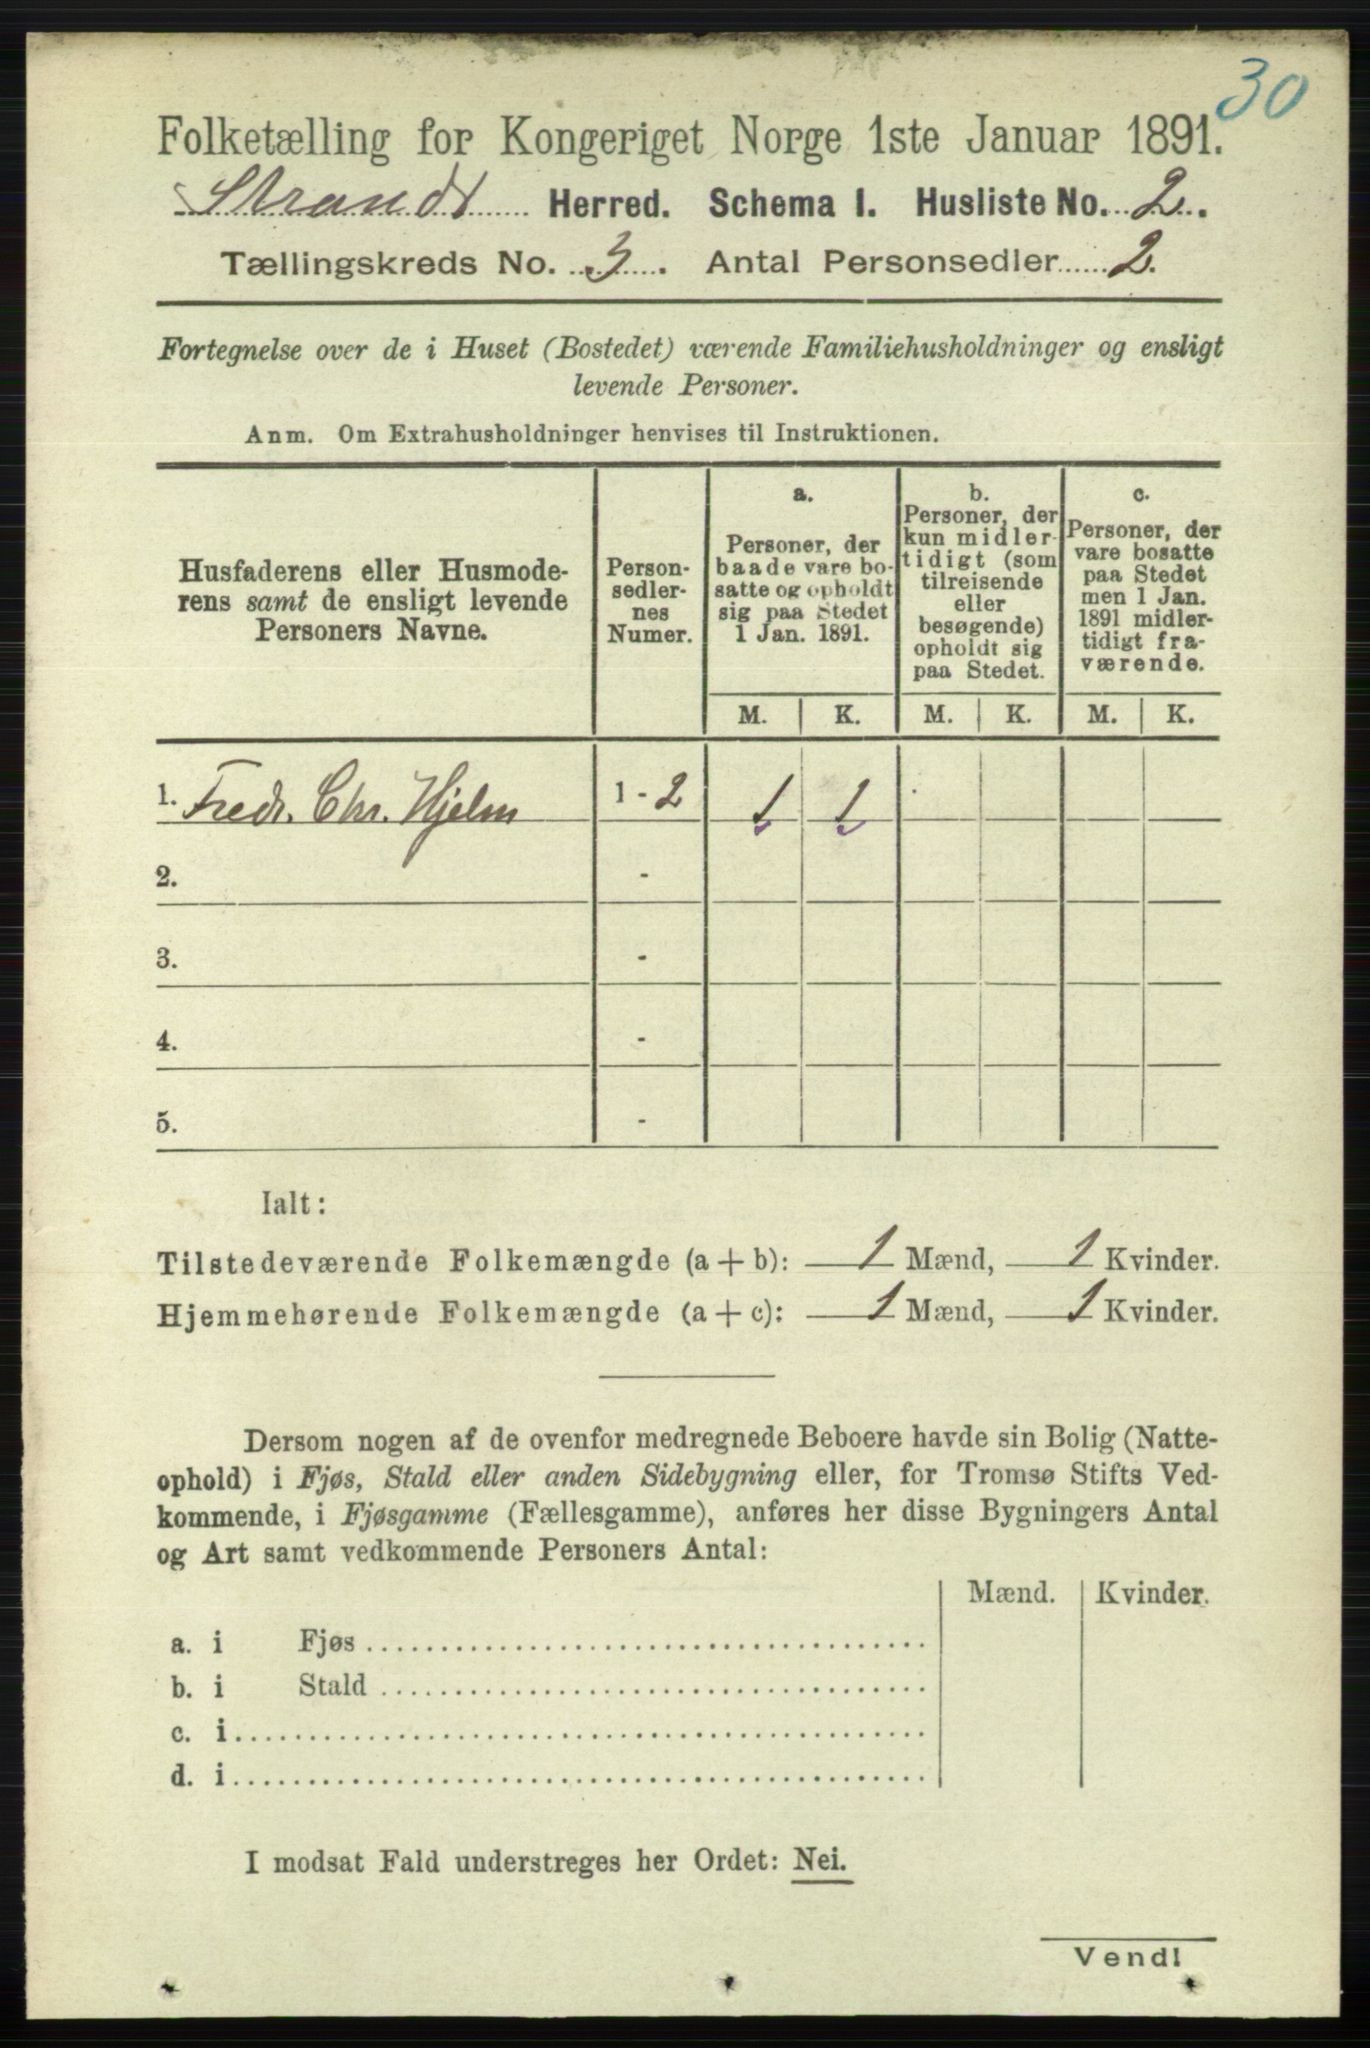 30
Folketælling for Kongeriget Norge 1ste Januar 1891.
Strand Herred. Schema I. Husliste No. 2.
Tællingskreds No. 3. Antal Personsedler 2.
Fortegnelse over de i Huset (Bostedet) værende Familiehusholdninger og ensligt
levende Personer.
Anm. Om Extrahusholdninger henvises til Instruktionen.
Husfaderens eller Husmode-
rens samt de ensligt levende
Personers Navne.
Person-
sedler-
nes
Numer.
a.
Personer, der
baade vare bo-
satte og opholdt
sig paa Stedet
1 Jan. 1891.
b.
Personer, der
kun midler-
tidigt (som
tilreisende
eller
besøgende)
opholdt sig
paa Stedet.
c.
Personer, der
vare bosatte
paa Stedet
men 1 Jan.
1891 midler-
tidigt fra-
værende.
M. K. M. K. M. K.
1. Fredr. Chr. Hjelm 1 - 2 1 1
2. -
3. -
4. -
5. -
Ialt:
Tilstedeværende Folkemængde (a + b): 1 Mænd, 1 Kvinder.
Hjemmehørende Folkemængde (a + c): 1 Mænd, 1 Kvinder.
Dersom nogen af de ovenfor medregnede Beboere havde sin Bolig (Natte-
ophold) i Fjøs, Stald eller anden Sidebygning eller, for Tromsø Stifts Ved-
kommende, i Fjøsgamme (Fællesgamme), anføres her disse Bygningers Antal
og Art samt vedkommende Personers Antal:
Mænd. Kvinder.
a. i Fjøs
b. i Stald
c. i
d. i
I modsat Fald understreges her Ordet: Nei.
Vend!